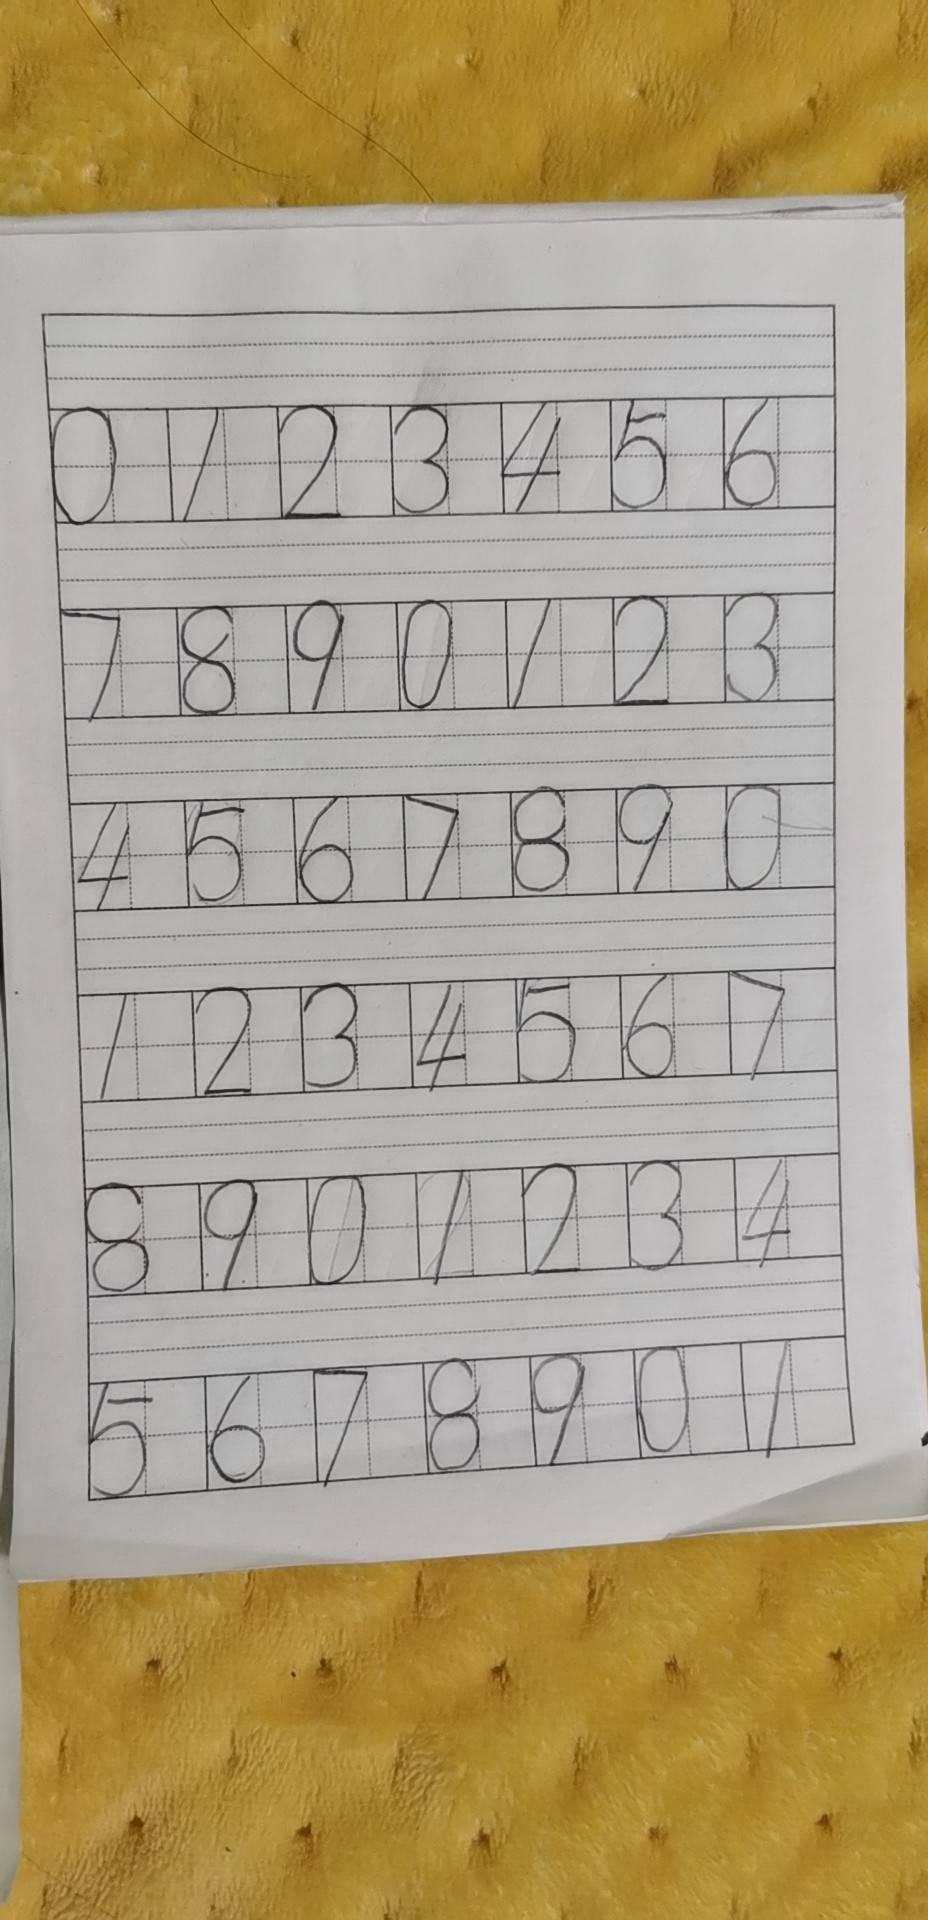 0 1 2 3 4 5 6
7 8 9 0 1 2 3
4 5 6 7 8 9 0
1 2 3 4 5 6 7
8 9 0 1 2 3 4
5 6 7 8 9 0 1